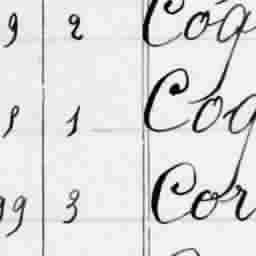 9 2 Cog
9 1 Cog
99 3 Cor